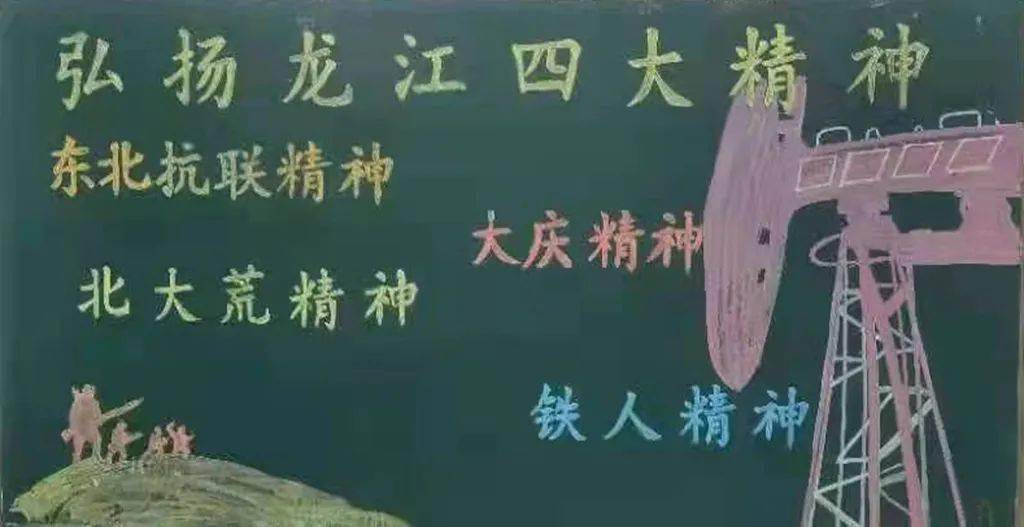 弘扬龙江四大精神
东北抗联精神
大庆精神
北大荒精神
铁人精神